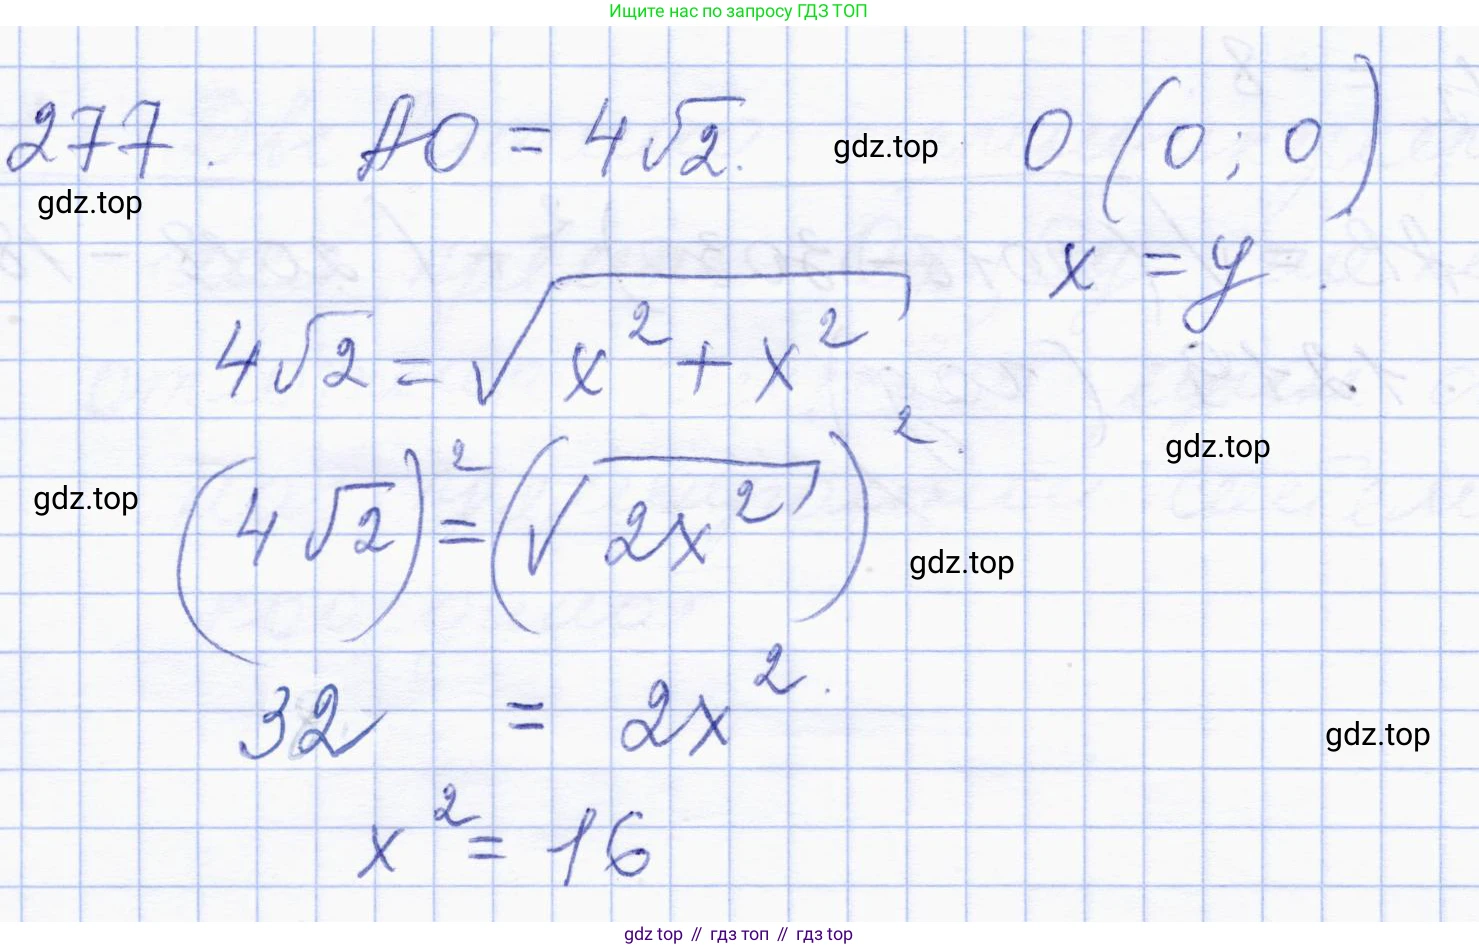 Ищите нас по запросу ГДЗ ТОП
277. AO = 4√2. gdz.top O (0; 0)
gdz.top
x = y.
4√2 = √x² + x²
gdz.top
(4√2)² = (√2x²)²
gdz.top
gdz.top
32 = 2x².
gdz.top
x² = 16
gdz top // гдз топ // гдз top